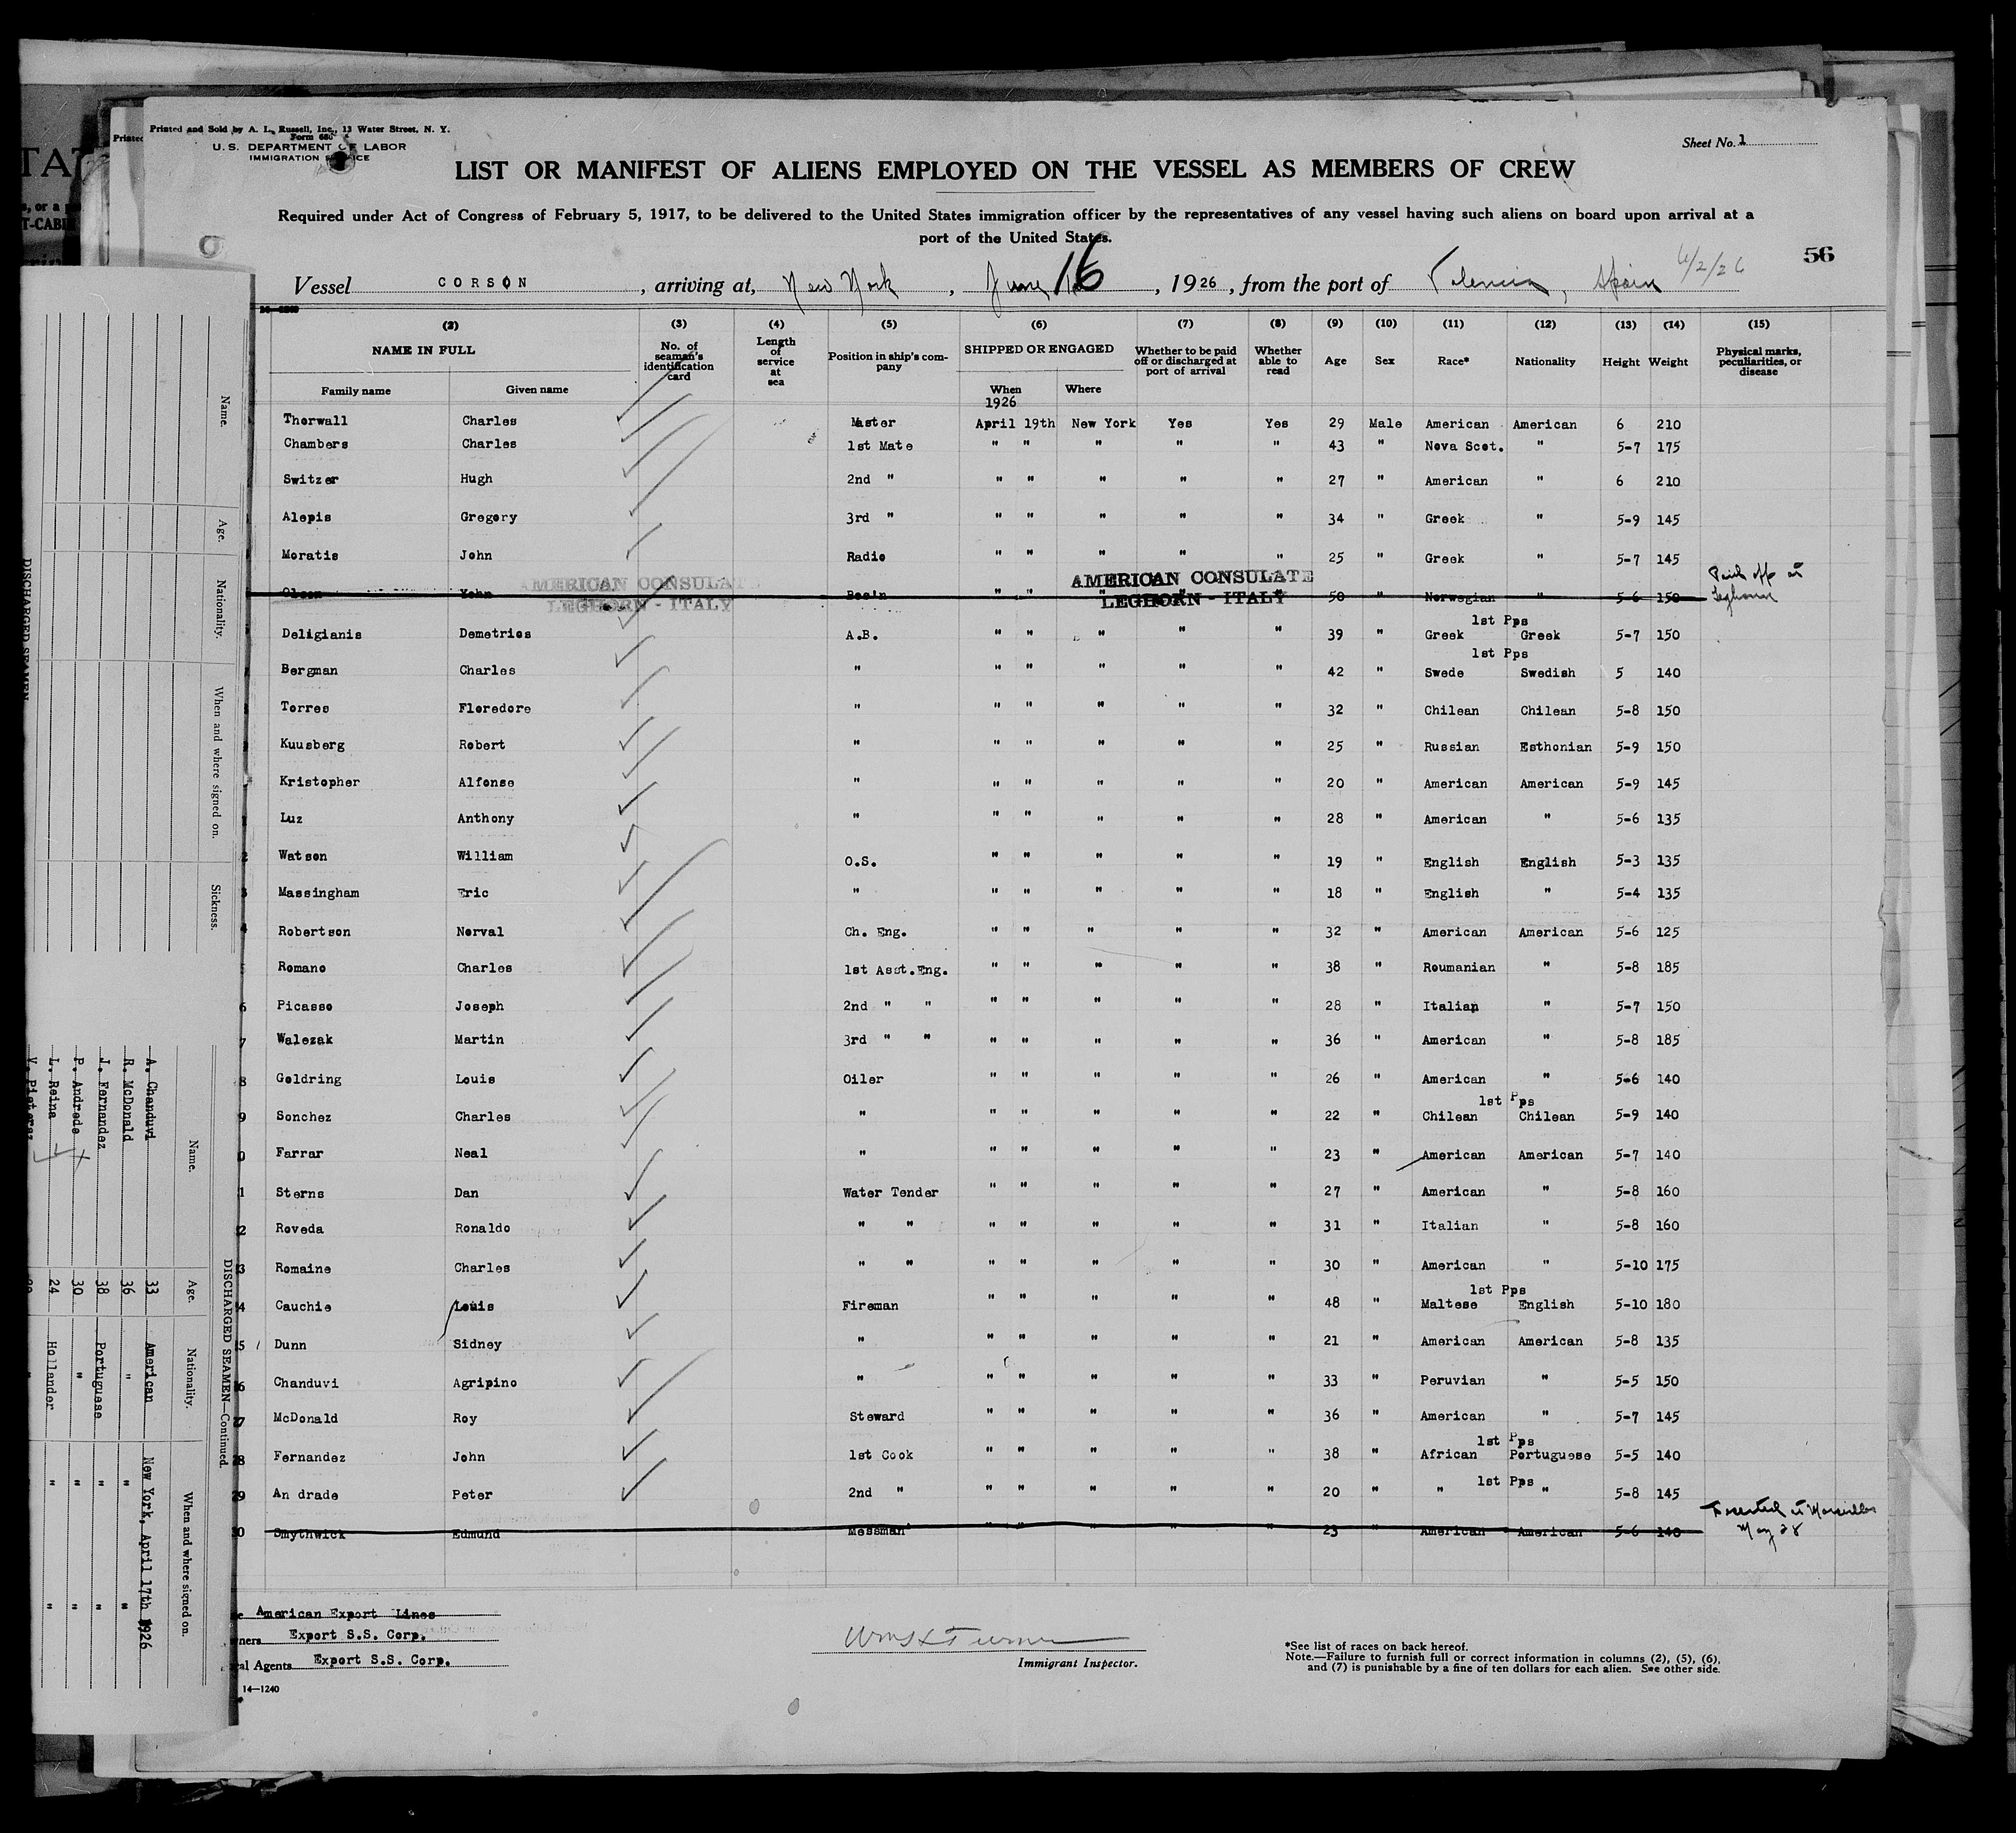 Printed and Sold by A. L. Russell, Inc., 13 Water Street, N. Y.
Form 680
U. S. DEPARTMENT OF LABOR
IMMIGRATION SERVICE
Sheet No. 1
LIST OR MANIFEST OF ALIENS EMPLOYED ON THE VESSEL AS MEMBERS OF CREW
Required under Act of Congress of February 5, 1917, to be delivered to the United States immigration officer by the representatives of any vessel having such aliens on board upon arrival at a
port of the United States.
56
Vessel CORSON, arriving at, New York, June 16, 1926, from the port of Valencia, Spain 6/2/26
(2) (3) (4) (5) (6) (7) (8) (9) (10) (11) (12) (13) (14) (15)
NAME IN FULL No. of seaman's identification card Length of service at sea Position in ship's company SHIPPED OR ENGAGED Whether to be paid off or discharged at port of arrival Whether able to read Age Sex Race* Nationality Height Weight Physical marks, peculiarities, or disease
Family name Given name When Where
1926
Thorwall Charles Master April 19th New York Yes Yes 29 Male American American 6 210
Chambers Charles 1st Mate " " " " " 43 " Nova Scot. " 5-7 175
Switzer Hugh 2nd " " " " " " 27 " American " 6 210
Alepis Gregory 3rd " " " " " " 34 " Greek " 5-9 145
Moratis John Radio " " " " " 25 " Greek " 5-7 145
AMERICAN CONSULATE AMERICAN CONSULATE Paid off at
Olsen John Bos'n " " " " " 50 " Norwegian " 5-6 150 Leghorn
LEGHORN - ITALY LEGHORN - ITALY
1st Pps
Deligianis Demetrios A.B. " " " " " 39 " Greek Greek 5-7 150
1st Pps
Bergman Charles " " " " " " 42 " Swede Swedish 5 140
Torres Floredore " " " " " " 32 " Chilean Chilean 5-8 150
Kuusberg Robert " " " " " " 25 " Russian Esthonian 5-9 150
Kristopher Alfonse " " " " " " 20 " American American 5-9 145
Luz Anthony " " " " " " 28 " American " 5-6 135
Watson William O.S. " " " " " 19 " English English 5-3 135
Massingham Eric " " " " " " 18 " English " 5-4 135
Robertson Norval Ch. Eng. " " " " " 32 " American American 5-6 125
Romano Charles 1st Asst.Eng. " " " " " 38 " Roumanian " 5-8 185
6 Picasso Joseph 2nd " " " " " " " 28 " Italian " 5-7 150
7 Walezak Martin 3rd " " " " " " " 36 " American " 5-8 185
8 Goldring Louis Oiler " " " " " 26 " American " 5-6 140
1st Pps
9 Sonchez Charles " " " " " " 22 " Chilean Chilean 5-9 140
0 Farrar Neal " " " " " " 23 " American American 5-7 140
1 Sterns Dan Water Tender " " " " " 27 " American " 5-8 160
2 Roveda Ronaldo " " " " " " " 31 " Italian " 5-8 160
3 Romaine Charles " " " " " " " 30 " American " 5-10 175
1st Pps
4 Cauchie Louis Fireman " " " " " 48 " Maltese English 5-10 180
5 Dunn Sidney " " " " " " 21 " American American 5-8 135
6 Chanduvi Agripino " " " " " " 33 " Peruvian " 5-5 150
7 McDonald Roy Steward " " " " " 36 " American " 5-7 145
1st Pps
28 Fernandez John 1st Cook " " " " " 38 " African Portuguese 5-5 140
1st Pps
29 An drade Peter 2nd " " " " " " 20 " " " 5-8 145
30 Smythwick Edmund Messman " " " " " 23 " American American 5-6 140 Deserted at Marseilles
May 28
American Export Lines
Export S.S. Corp.
Agents Export S.S. Corp.
Immigrant Inspector.
*See list of races on back hereof.
Note.—Failure to furnish full or correct information in columns (2), (5), (6),
and (7) is punishable by a fine of ten dollars for each alien. See other side.
14—1240
DISCHARGED SEAMEN
Name. Age. Nationality. When and where signed on. Sickness.
DISCHARGED SEAMEN—Continued.
Name. Age. Nationality. When and where signed on.
A. Chanduvi 33 American New York, April 17th 1926
R. McDonald 36 " " "
J. Fernandez 38 Portuguese " "
P. Andrade 30 " " "
L. Reina 24 Hollander " "